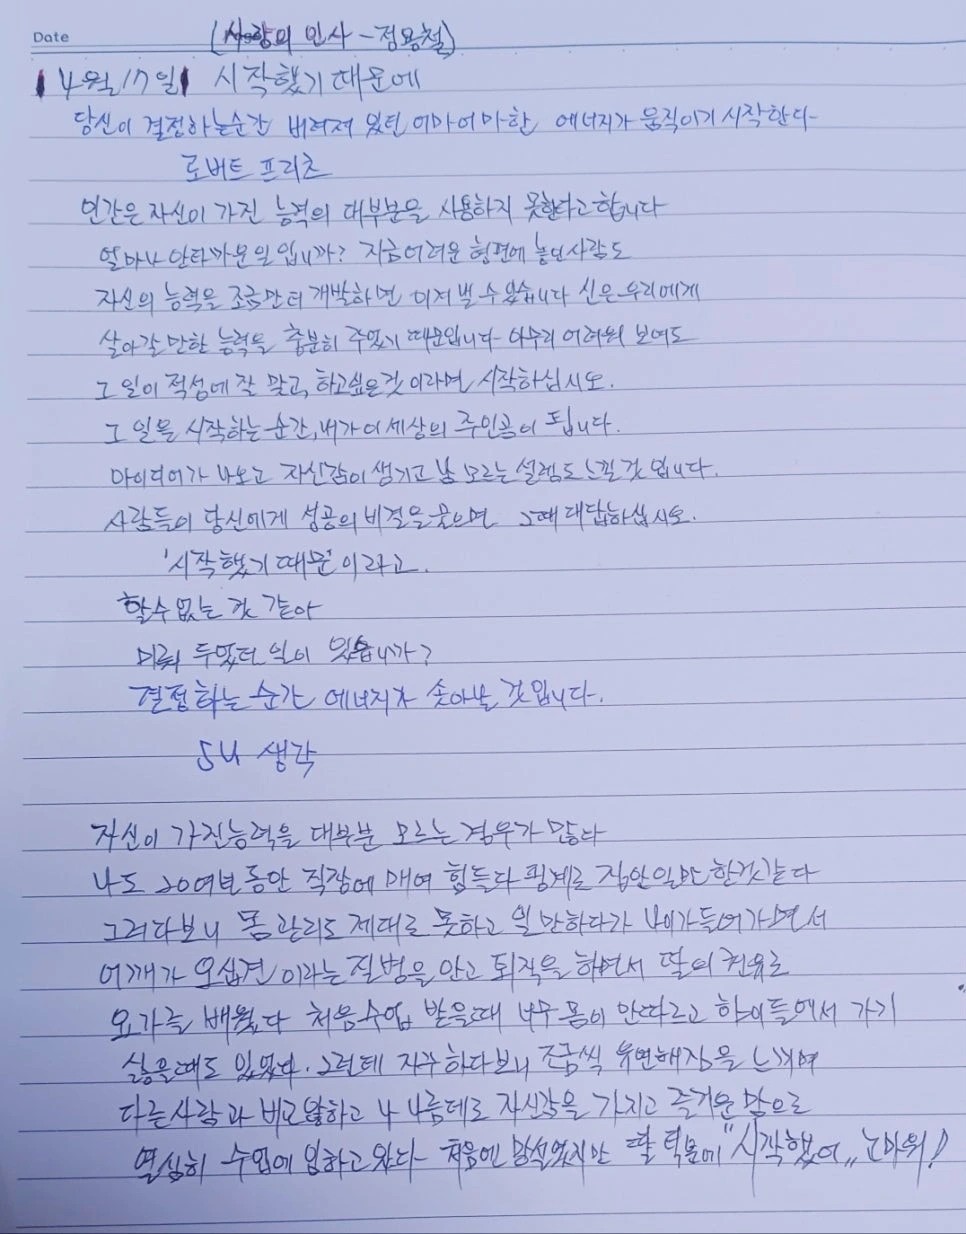 Date
(사랑의 인사 - 정용철)
4월 17일 시작했기 때문에
당신이 결정하는 순간 버려져 있던 어마어마한 에너지가 움직이기 시작한다-
로버트 프리츠
인간은 자신이 가진 능력의 대부분을 사용하지 못한다고 합니다
얼마나 안타까운 일입니까? 지금 어려운 형편에 놓인 사람도
자신의 능력을 조금만 더 개발하면 이겨 낼 수 있습니다 신은 우리에게
살아갈 만한 능력을 충분히 주었기 때문입니다- 아무리 어려워 보여도
그 일이 적성에 잘 맞고, 하고싶은 것 이라면 시작하십시오.
그 일을 시작하는 순간, 내가 이 세상의 주인공이 됩니다.
아이디어가 나오고 자신감이 생기고 남 모르는 설렘도 느낄 것 입니다.
사람들이 당신에게 성공의 비결을 물으면 그때 대답하십시오.
'시작했기 때문'이라고.
할수 없는 것 같아
미뤄 두었던 일이 있습니까?
결정하는 순간 에너지가 솟아날 것입니다.
SU 생각
자신이 가진능력을 대부분 모르는 경우가 많다
나도 20여년동안 직장에 매여 힘들다 핑계로 집안일만 한것같다
그러다보니 몸 관리도 제대로 못하고 일만하다가 나이가들어가면서
어깨가 오십견 이라는 질병을 안고 퇴직을 하면서 딸의 권유로
요가를 배웠다 처음수업 받을때 너무 몸이 안따르고 힘이들어서 가기
싫을때도 있었다. 그런데 자꾸 하다보니 조금씩 유연해짐을 느끼며
다른사람과 비교않하고 나 나름데로 자신감을 가지고 즐거운 맘으로
열심히 수업에 임하고 왔다- 처음엔 망설였지만 딸 덕분에 "시작했어,, 고마워!